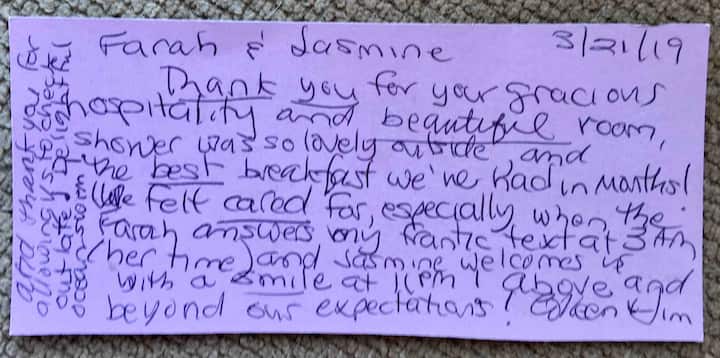 Farah & Jasmine 3/21/19
Thank you for your gracious
hospitality and beautiful room,
shower was so lovely outside, and
the best breakfast we've had in months!
We felt cared for, especially when the
Farah answers my frantic text at 3 AM
(her time) and Jasmine welcomes us
with a smile at 11pm! Above and
beyond our expectations! & Jim
and thank you for
allowing us to check
out late! Delightful
ocean